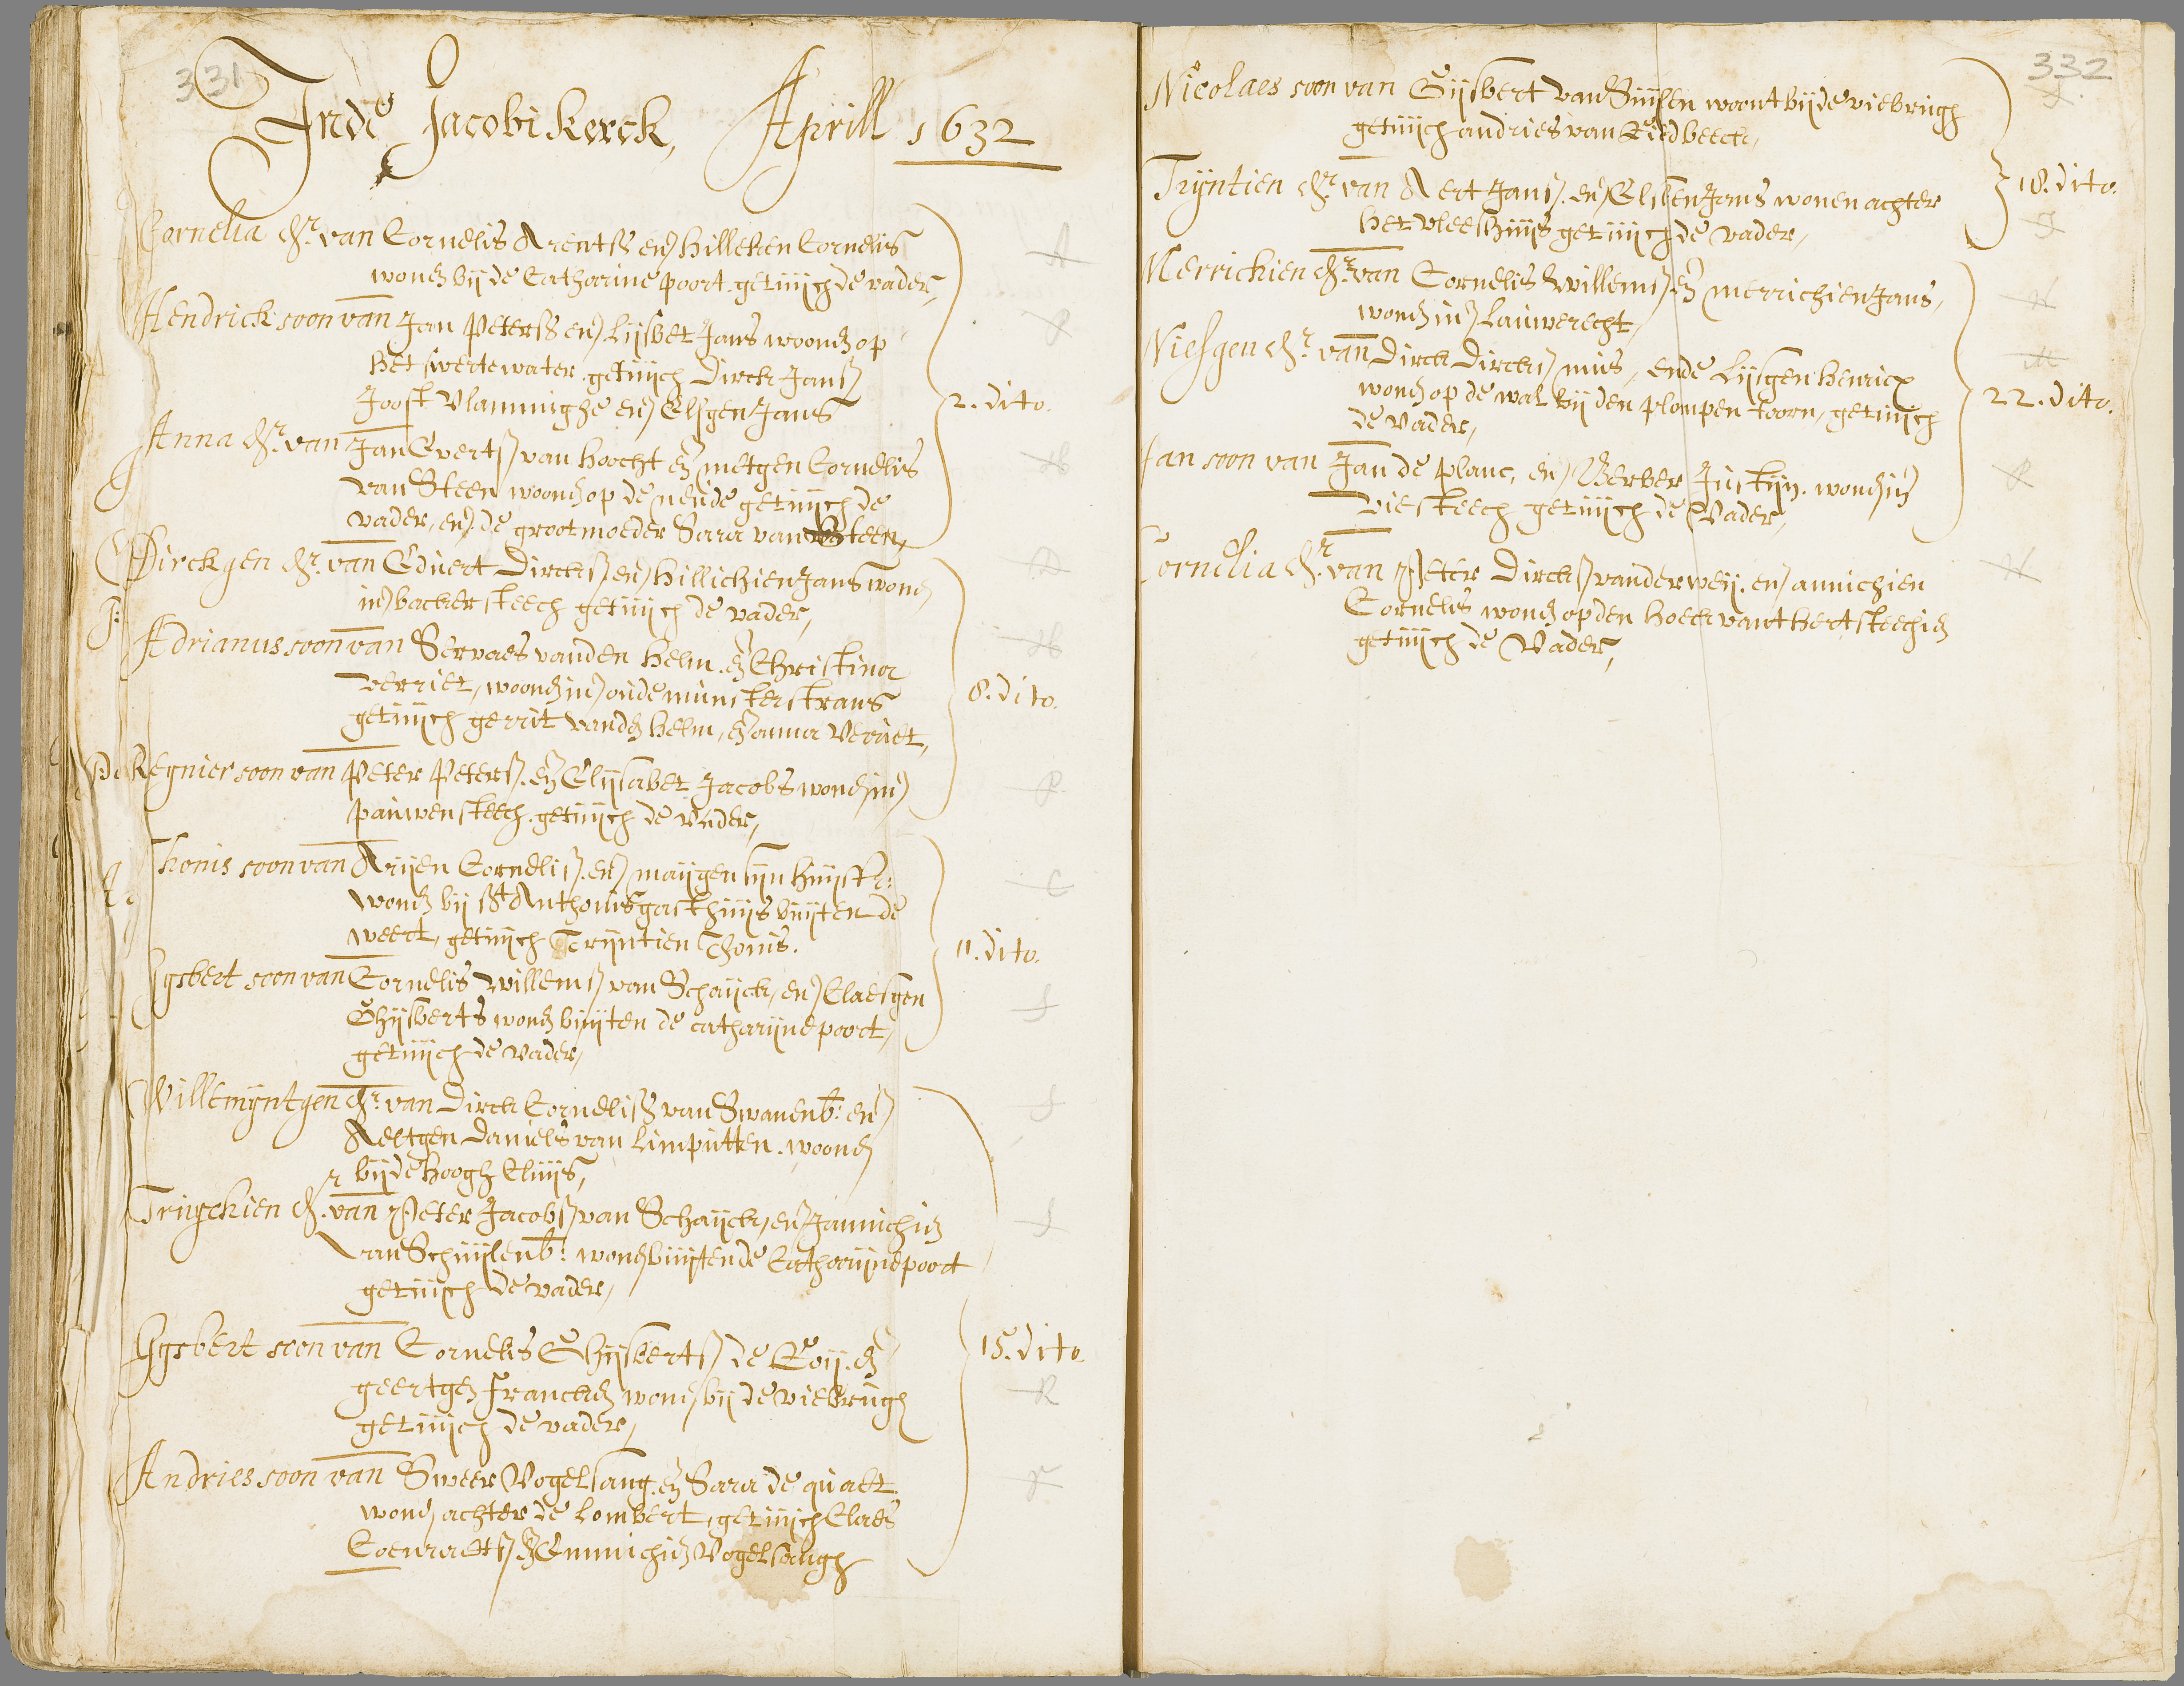 331
Inde Jacobi Kerck, Aprill 1632
Cornelia dr. van Cornelis Arentss en Hilleken Cornelis
wonen bij de Catharine poort. getuijch de vader,
Hendrick soon van Jan Peterss en Lijsbet Jans woonen op
het swerte water getuijch Dirck Janss
Joost Vlamminghe en Elsgen Jans
2. dito.
Anna dr. van Jan Evertss van Hoocht en metgen Cornelis
van Steen woonen op de neude getuijch de
vader, en de grootmoeder Sara van Steen,
Dirckgen dr. van Eduert Dirckss en Hillichien Jans wonen
in backersteech getuijch de vader,
Adrianus soon van Servaes vanden Helm en Christina
verriet, woonen in oude munsterstrans
getuijch gerrit vanden Helm, en anna Veriet,
8. dito.
Regnier soon van Peter Peterss. en Elijsabet Jacobs wonen in
pauwensteech. getuijch de vader,
Thonis soon van Arijen Corneliss. en maijgen sijn huijsvr:
wonen bij St Anthonisgasthuijs buijten de
weert, getuijch Trijntien Thonis.
11. dito.
Gysbert soon van Cornelis Willemss van Schayck, en Claesgen
Ghijsberts wonen buijten de catharijne poort,
getuijch de vader,
Willemyntgen dr. van Dirck Corneliss van Swanenb: en
Aeltgen Daniels van Limputten. woonen
bij de hoogh Cluijs,
Trugchien dr. van Peter Jacobss van Schayck, en Jannichien
van Schuijlenb: wonen buijten de Catharijne poort
getuijch de vader,
Gysbert soon van Cornelis Ghijsbertss de Roij. en
geertgen Francken wonen bij de viebrugh
getuijch de vader,
15. dito.
Andries soon van Sweer Vogelsang. en Sara de quaet
wonen achter de Lombert, getuijch Claes
Coenraetss en Emmichien Vogelsangh
332
Nicolaes soon van Gijsbert van Suijlen woont bij de viebrugh
getuijch andries van Riedbeeck,
Tryntien dr. van Aert Janss. en Elsken Jans wonen achter
het vleeshuijs getuijch de vader,
18. dito.
Merrickien dr. van Cornelis Willemss. en merrichien Jans,
wonen in Lauwerecht,
Niesgen dr. van Dirck Dirckss mus, ende Lijsgen Henricx
wonen op de wal bij den plompen toorn, getuijch
de vader,
22. dito.
Jan soon van Jan de planc, en Berber Justijn. wonen in
Viesteech getuijch de Vader,
Cornelia dr. van Peter Dirckss vander weij. en annichien
Cornelis wonen op den hoeck vant hertsteechien
getuijch de Vader,